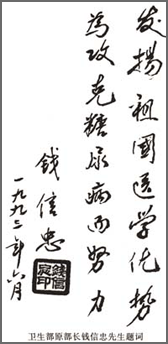 发揚祖國医学优势
為攻克糖尿病而努力
钱信忠
一九九二年六月
卫生部原部长钱信忠先生题词